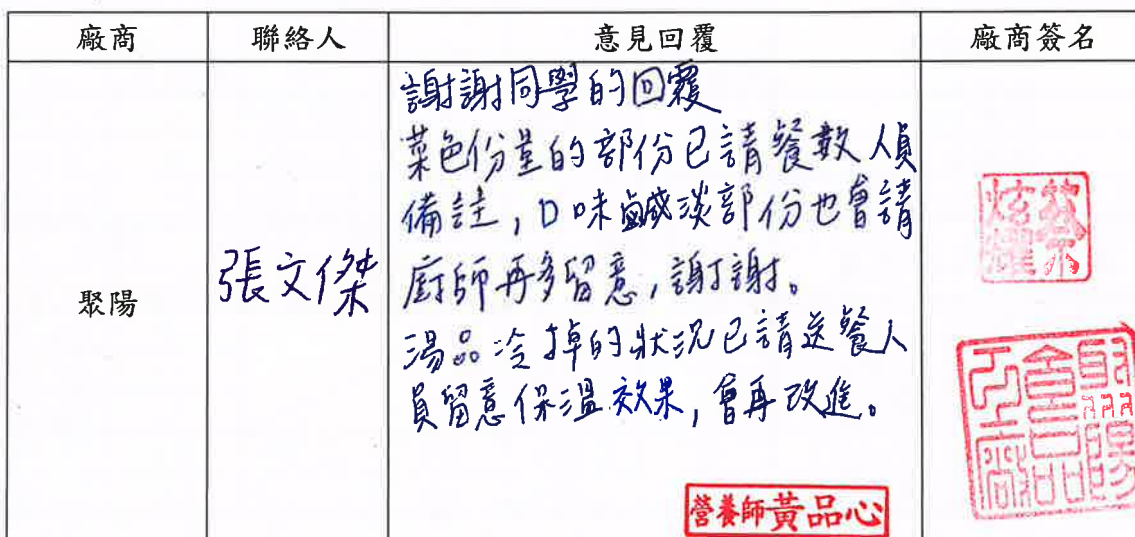 廠商 聯絡人 意見回覆 廠商簽名
聚陽
張文傑
謝謝同學的回覆
菜色份量的部份已請餐數人員
備註,口味鹹淡部份也會請
廚師再多留意,謝謝。
湯品冷掉的狀況已請送餐人
員留意保溫效果,會再改進。
營養師黃品心
聚陽
食品
工廠